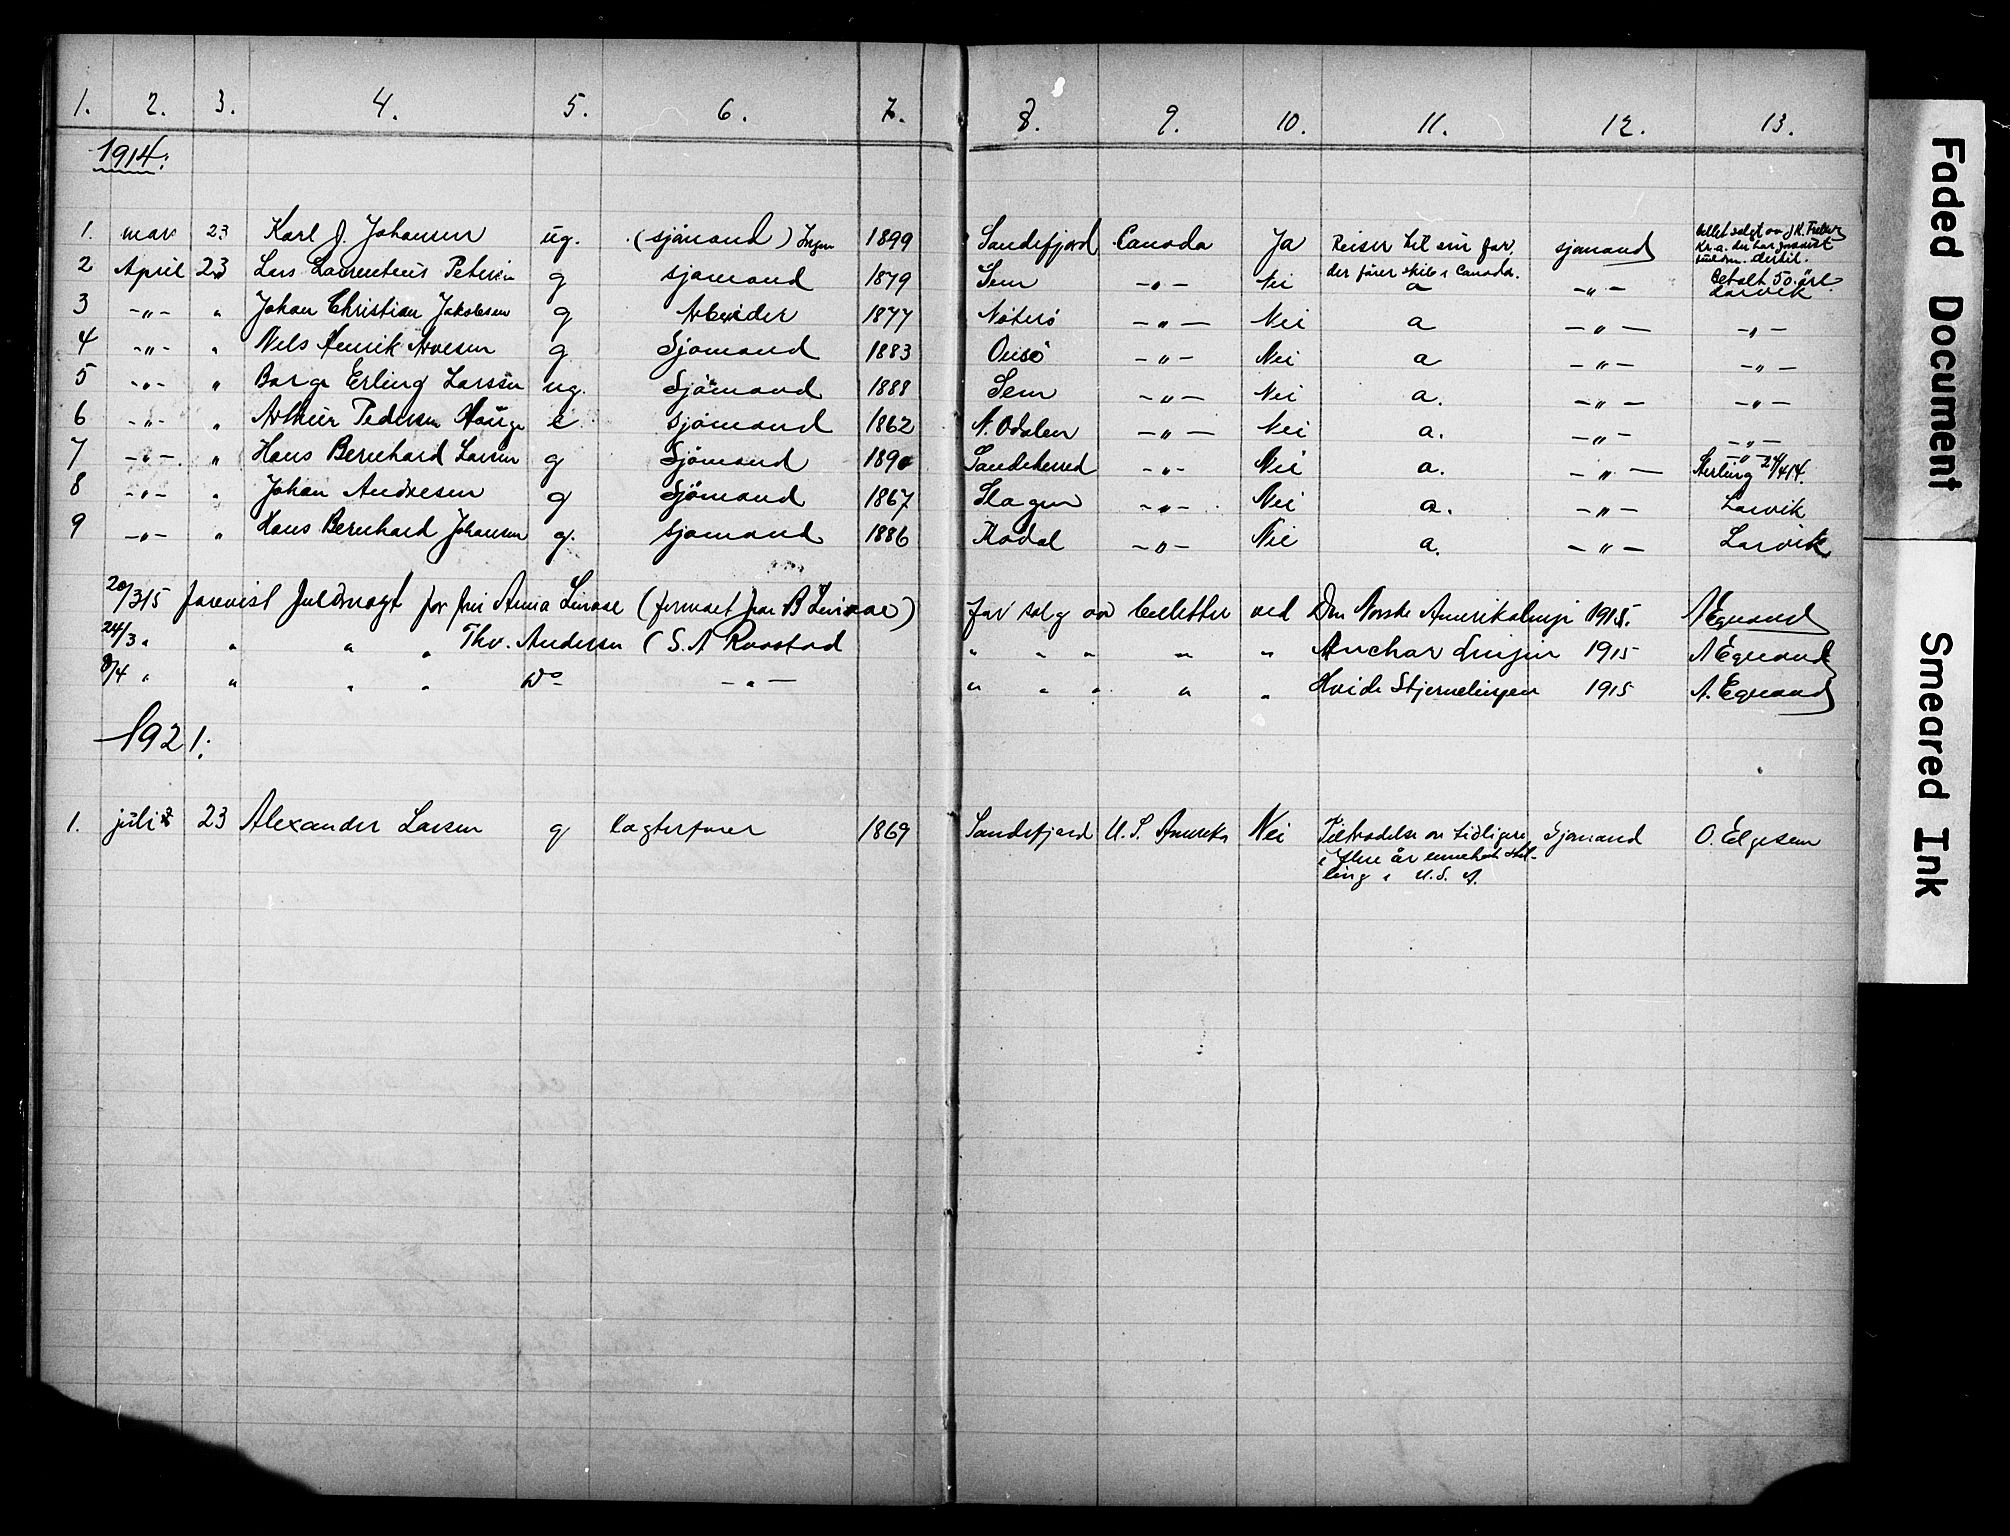 1. 2. 3. 4. 5. 6. 7. 8. 9. 10. 11. 12. 13.
1914:
1. mars 23 Karl J. Johansen ug. (sjömand) Ingen 1899 Sandefjord Canada Ja Reiser til sin far, sjömand billet solgt av J.K.
der förer skib i Canada. Kr.a. der har forevist fuldm. dertil.
2 April 23 Lars Laurentius Petersen g sjömand 1879 Sem -"- Nei a -"- Betalt 50 öre Larvik
3 -"- " Johan Christian Jakobsen g Arbeider 1877 Nöterö -"- Nei a -"- -"-
4 -"- " Nels Henrik Arvesen g Sjömand 1883 Onsö -"- Nei a -"- -"-
5 -"- " Borge Erling Larssen ug. Sjömand 1888 Sem -"- Nei a. -"- -"-
6 -"- " Arthur Pedersen Hauge e sjömand 1862 N. Odalen -"- Nei a. -"- -"-
7 -"- " Hans Bernhard Larsen g Sjömand 1890 Sandeherred -"- Nei a. -"- -"- Sterling 24/4 14.
8 -"- " Johan Andresen g Sjömand 1867 Slagen -"- Nei a. -"- Larvik
9 -"- " Hans Bernhard Johansen g. sjömand 1886 Kodal -"- Nei a. -"- Larvik
20/3 15 forevist fuldmagt for fru Anna Linaae (formaet fra B Linaae) for salg av billetter ved Den Norske Amerikalinje 1915. A Egnand
24/3 " " " " Thv. Andersen (S. A Raastad " " " " " Anchor Linjen 1915 A Egnand
8/4 " " " " Do -"- " " " " " Hvide Stjernelinjen 1915 A. Egnand
1921:
1. juli 23 Alexander Larsen g lagterförer 1869 Sandefjord U. S. Amerika Nei Tiltrædelse av tidligere Sjömand O. Elgesem
i flere år innehat stil-
ling i U. S. A.
Faded Document
Smeared Ink